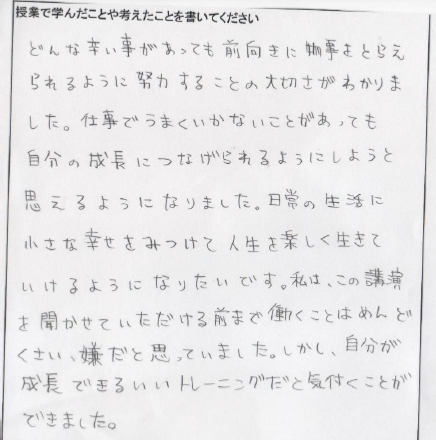 授業で学んだことや考えたことを書いてください
どんな辛い事があっても前向きに物事をとらえ
られるように努力することの大切さがわかりま
した。仕事でうまくいかないことがあっても
自分の成長につなげられるようにしようと
思えるようになりました。日常の生活に
小さな幸せをみつけて人生を楽しく生きて
いけるようになりたいです。私は、この講演
を聞かせていただける前まで働くことはめんど
くさい、嫌だと思っていました。しかし、自分が
成長できるいいトレーニングだと気付くことが
できました。